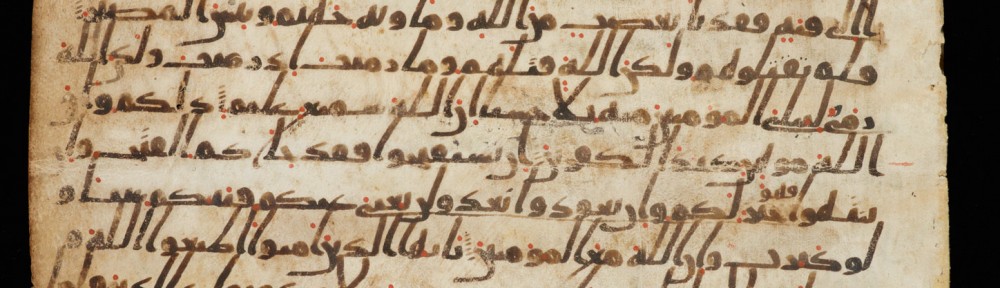 الى فيه فقد با بغضب من الله وماويه جهنم وبيس المصير
فلم تقتلوهم ولكن الله قتلهم وما رميت اذ رميت ولكن الله
رمى وليبلى المومنين منه بلا حسنا ان الله سميع عليم ذلكم و
الله موهن كيد الكفرين ان تستفتحوا فقد جاكم الفتح وا
ن تنتهوا فهو خير لكم وان تعودوا نعد ولن تغنى عنكم فيتكم شيا و
لو كثرت وان الله مع المومنين يايها الذين امنوا اطيعوا الله و